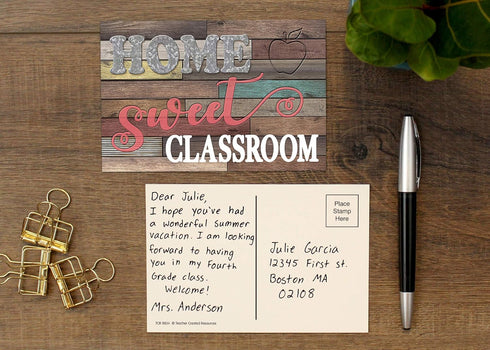 HOME
sweet
CLASSROOM
Dear Julie,
I hope you've had
a wonderful summer
vacation. I am looking
forward to having
you in my Fourth
Grade class.
Welcome!
Mrs. Anderson
Place
Stamp
Here
Julie Garcia
12345 First St.
Boston MA
02108
© Teacher Created Resources